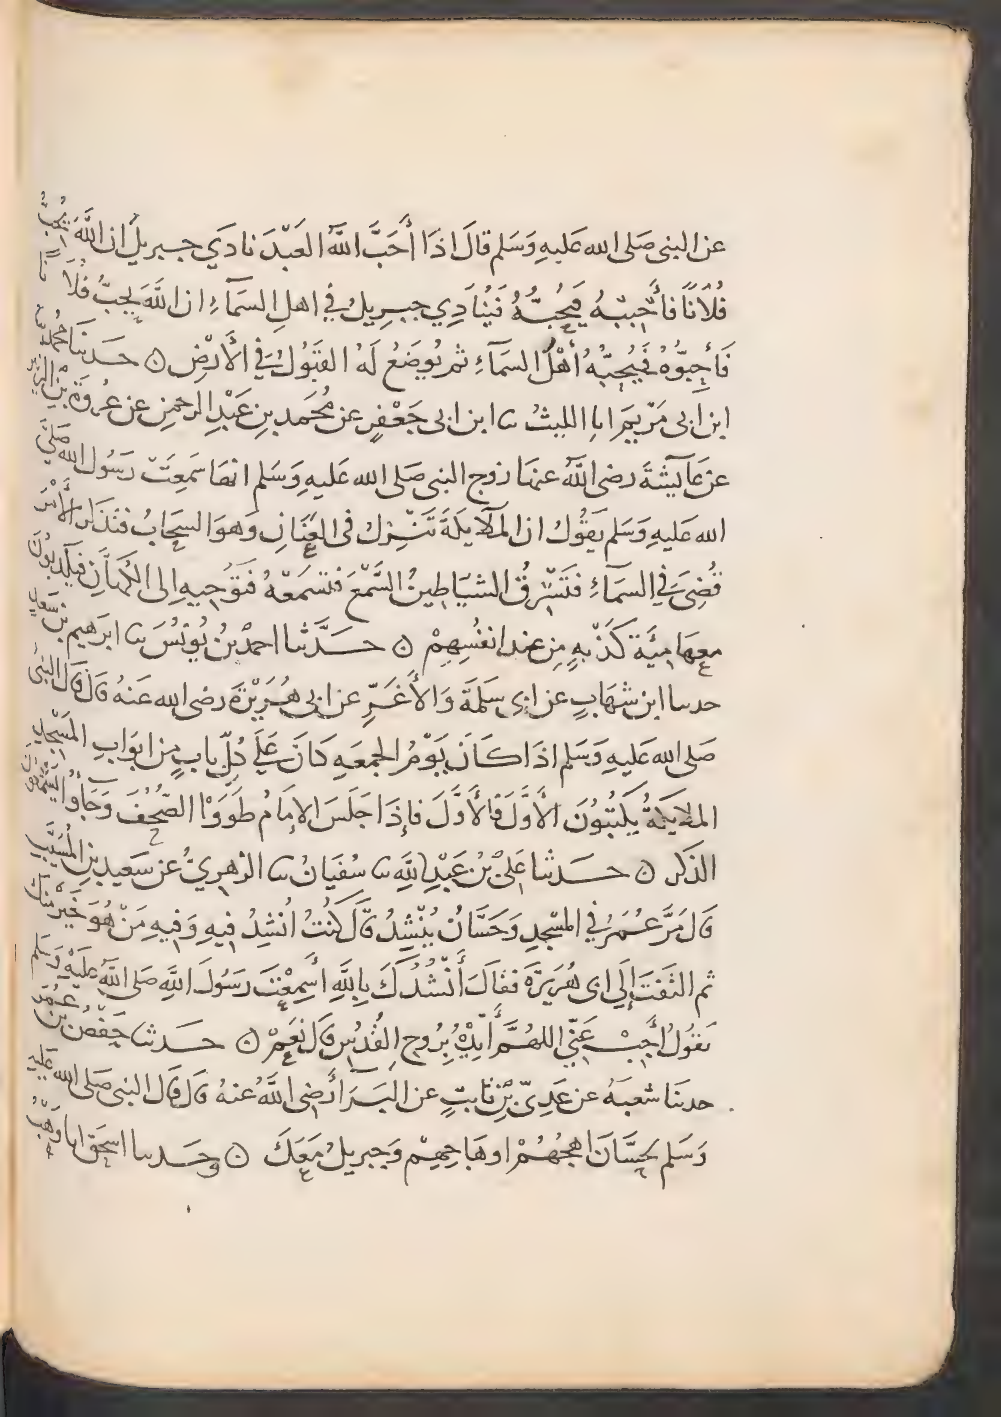 عن النبي صَلى الله عَليهِ وَسَلم قالَ اذَا أَحَبَّ اللَّهُ العَبْدَ نادَي جبريلَ ان اللَّهَ يُحِبُّ
فُلَانًا فَأَحْبِبْهُ فَيُحِبُّهُ فَيُنَادِي جبريلُ في اهلِ السمَآءِ ان اللَّهَ يُحبُّ فُلَانًا
فَأَحِبُّوْهُ فَيُحِبُّهُ أَهْلُ السمَآءِ ثم يُوضَعُ لَهُ القَبُولُ في الأَرْضِ ۞ حَدثنَا محُمد ثنا
ابن ابي مَرْيمَ انا الليثُ ثنا ابن ابي جَعْفرٍ عن مُحَمد بن عَبْدِ الرحمنِ عن عُروَةَ بْن الزبير
عن عَايشةَ رضى اللَّه عنها زوج النبي صَلى الله عَليهِ وَسَلم انها سَمِعَتْ رَسُول الله صَلَّى
الله عَليهِ وَسَلم يَقُولُ ان الملَايكةَ تَنْزِلُ في العَنَانِ وَهوَ السحَابُ فتَذكر الأَمْرَ
قُضِيَ في السمَآءِ فَتَسْتَرِقُ الشيَاطِينُ السَّمْعَ فتسمَعْهُ فتوُحِيهِ اِلى الكُهَّانِ فيَكذِبُونَ
معهَا مِئَةَ كَذْبهٍ مِن عند انفُسِهِمْ ۞ حَدَّثنا احمدُ بْنُ يُونُسَ ثنا ابرَهيم بن سَعدٍ
حدثنا ابن شهَابٍ عن ابي سَلَمَةَ وَالأَغَرِّ عن ابي هُرَيْرَةَ رضى الله عَنهُ قالَ قَالَ النبي
صَلى الله عَليهِ وَسَلم اذَا كَانَ يَوْمُ الجمعَهِ كانَ عَلَى كُلّ بابٍ مِن ابوَابِ المَسْجِدِ
الملَايِكةُ يَكْتُبُونَ الأَوَّلَ فَالأَوَّلَ فاِذَا جلَسَ الاِمَامُ طَوَوْا الصُّحُفَ وَجَاؤُا يَسْتَمِعُونَ
الذكر ۞ حَدثنا عَليُّ بْنُ عَبْدِ اللَّهِ ثنا سُفيَانُ ثنا الزهرِيُّ عن سَعيدِ بن المُسَيَّبِ
قالَ مَرَّ عُمَرُ في المَسْجِدِ وَحَسَّانُ يُنْشِدُ قَالَ كُنْتُ اُنشِدُ فِيهِ وَفِيهِ مَنْ هُوَ خَيرٌ مِنكَ
ثم التَفَتَ إلَي ابي هُرَيرَةَ فقالَ أَنْشُدُكَ بِاللَّهِ اَسِمِعْتَ رَسُولَ اللَّهِ صَلى اللَّهُ عَليْهِ وَسَلم
يَقُولُ اَجِبْ عَنِّي اللهُمَّ أَيِّدْهُ بِرُوحِ القُدُسِ قَالَ نَعَمْ ۞ حَدثنا حَفْصُ بْن عُمَر
حدثنَا شعبَهُ عن عَدِيّ بْنِ ثابتٍ عن البَرَاء رَضى اللَّهُ عنهُ قالَ قالَ النبي صَلى الله عَليهِ
وَسَلم لحسَّانَ اهجُهُمْ اوهَاجِهِمْ وَجبريلُ مَعَكَ ۞ وحَدثنا اسحَق انا وَهْبُ